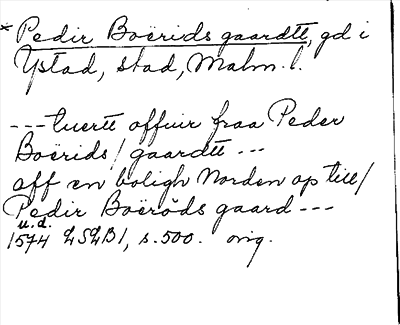 * Pedir Boërids gaardtt, gd i
Ystad, stad, Malm. l.
--- tuertt offuir fraa Peder
Boërids / gaardtt ---
aff en boligh Norden op till /
Pedir Boërøds gaard ---
u.d.
1574 LSLB1, s. 500. orig.